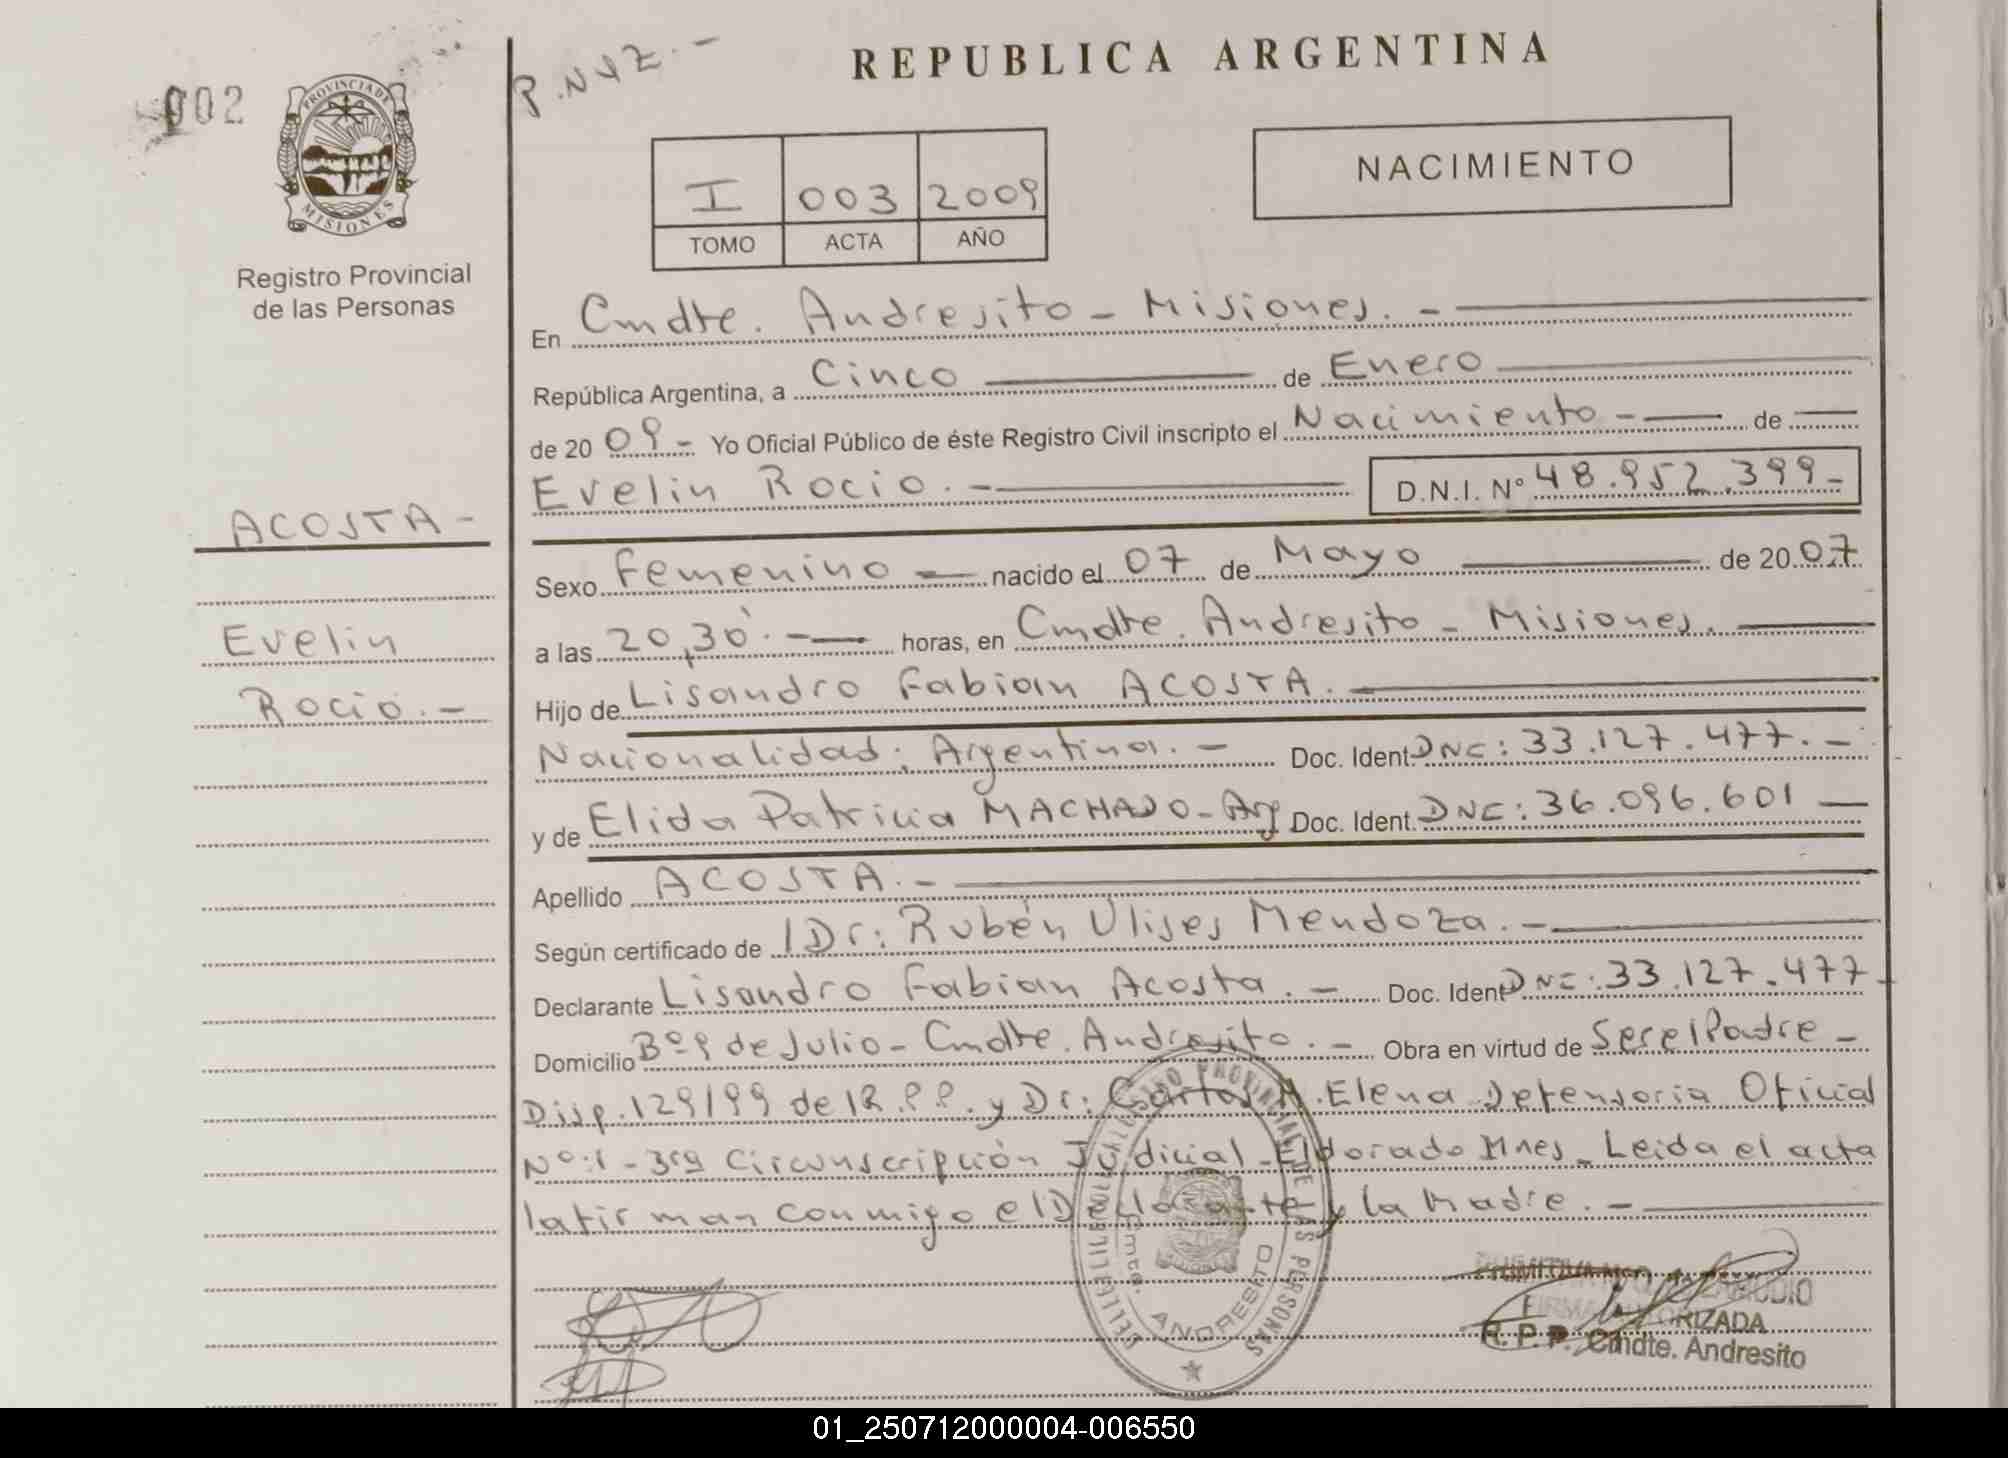 002
P.N y Z. -
REPUBLICA ARGENTINA
PROVINCIA DE
MISIONES
Registro Provincial
de las Personas
I 003 2009
TOMO ACTA AÑO
NACIMIENTO
En Cmdte. Andresito - Misiones. -
República Argentina, a Cinco de Enero
de 2009 - Yo Oficial Público de éste Registro Civil inscripto el Nacimiento - de
Evelin Rocio. - D.N.I. Nº 48.952.399 -
ACOSTA -
Evelin
Rocio. -
Sexo Femenino - nacido el 07 de Mayo de 2007
a las 20,30. - horas, en Cmdte. Andresito - Misiones.
Hijo de Lisandro Fabian ACOSTA. -
Nacionalidad: Argentina. - Doc. Ident. DNI: 33.127.477. -
y de Elida Patricia MACHADO - Arg Doc. Ident. DNI: 36.096.601
Apellido ACOSTA. -
Según certificado de Dr: Rubén Ulises Mendoza. -
Declarante Lisandro Fabian Acosta. - Doc. Ident DNI: 33.127.477 -
Domicilio Bº 9 de Julio - Cmdte. Andresito. - Obra en virtud de Ser el Padre -
Disp. 129/99 de R.P.P. y Dr: Carlos A. Elena Defensoria Oficial
Nº: 1 - 3ra Circunscripción Judicial - Eldorado Mnes - Leida el acta
la firman conmigo el Declarante y la Madre. -
REGISTRO PROVINCIAL DE LAS PERSONAS
Cmte. ANDRESITO
FIRMA AUTORIZADA
R.P.P. Cmdte. Andresito
01_250712000004-006550